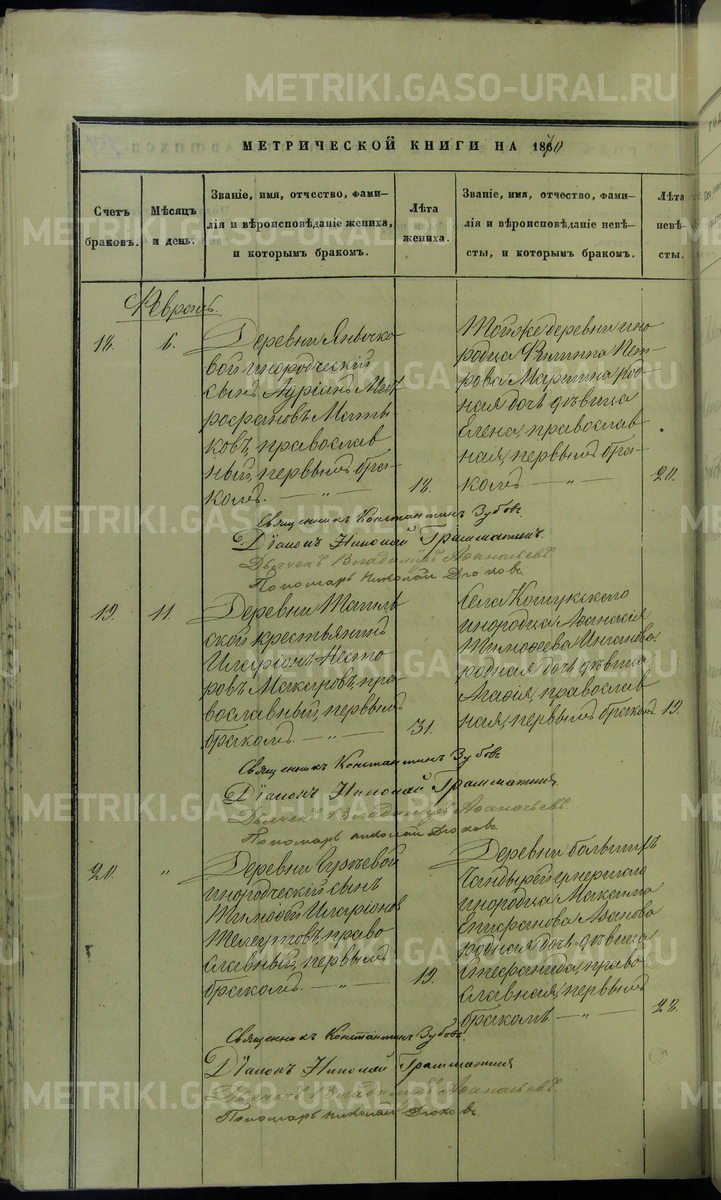 METRIKI.GASO-URAL.RU
МЕТРИЧЕСКОЙ КНИГИ НА 1870
Счетъ браковъ.
Мѣсяцъ и день.
Званіе, имя, отчество, фами-
лія и вѣроисповѣданіе жениха,
и которымъ бракомъ.
Лѣта жениха.
Званіе, имя, отчество, фами-
лія и вѣроисповѣданіе невѣ-
сты, и которымъ бракомъ.
Лѣта невѣ-
сты.
Февраль.
18.
6.
Деревни
вой инородческій
сынъ Адріанъ Мит
рофановъ
ковъ, православ
ный, первымъ бра-
комъ. — „ —
18.
Тойже деревни ино
родца Филиппа Пет
рова Мартина род
ная дочь дѣвица
Елена, православ
ная, первымъ бра-
комъ — „ —
20.
Священникъ Константинъ Зубовъ
Діаконъ Николай Грамматинъ.
Дьячекъ Владиміръ Аѳанасьевъ
Пономарь Николай
19.
11.
Деревни
ской крестьянинъ
Иларіонъ Несто
ровъ Макаровъ, пра
вославный, первымъ
бракомъ. — „ —
31.
Села Кошукскаго
инородца Аѳанасія
Тимоѳеева
родная дочь дѣвица
Агаѳія, православ
ная, первымъ бракомъ.
19.
Священникъ Константинъ Зубовъ
Діаконъ Николай Грамматинъ
Дьячекъ Владиміръ Аѳанасьевъ.
Пономарь Николай
20.
„
Деревни
инородческій сынъ
Тимоѳей Иларіоновъ
право
славный, первымъ
бракомъ. — „ —
19.
Деревни
инородца Максима
Епифанова
родная дочь дѣвица
Стефанида, право
славная, первымъ
бракомъ — „ —
22.
Священникъ Константинъ Зубовъ.
Діаконъ Николай Грамматинъ
Дьячекъ Владиміръ Аѳанасьевъ.
Пономарь Николай